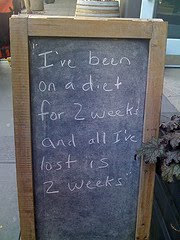 "I've been
on a diet
for 2 weeks
and all I've
lost is
2 weeks"